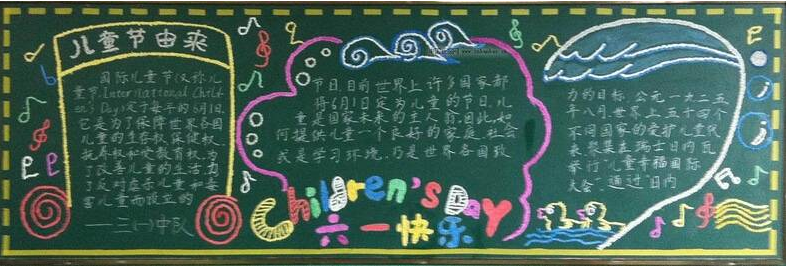 儿童节由来
国际儿童节(又称儿
童节,International Child
en's Day)定于每年的6月1日.
它是为了保障世界各国
儿童的生存权、保健权、
抚养权和受教育权,为
了改善儿童的生活,为
了反对虐杀儿童和毒
害儿童而设立的
——三(一)中队
节日.目前世界上许多国家都
将6月1日定为儿童的节日.儿
童是国家未来的主人翁.因此,如
何提供儿童一个良好的家庭、社会
或是学习环境,乃是世界各国致
Children's Day
六一快乐
力的目标.公元一九二五
年八月,世界上五十四个
不同国家的爱护儿童代
表聚集在瑞士日内瓦
举行"儿童幸福国际
大会",通过"日内